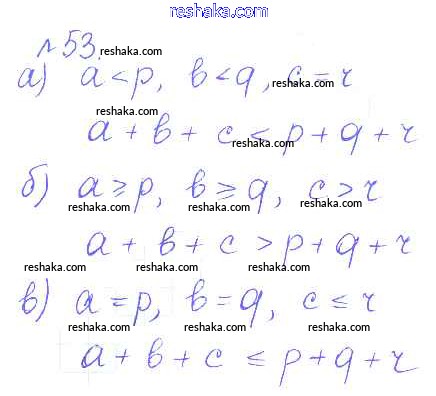 reshaka.com
№53.
reshaka.com
а) a < p, b < q, c = r
reshaka.com reshaka.com
a + b + c < p + q + r
reshaka.com
б) a ≥ p, b ≥ q, c > r
reshaka.com reshaka.com reshaka.com
a + b + c > p + q + r
reshaka.com reshaka.com reshaka.com
в) a = p, b = q, c ≤ r
reshaka.com reshaka.com reshaka.com
a + b + c ≤ p + q + r